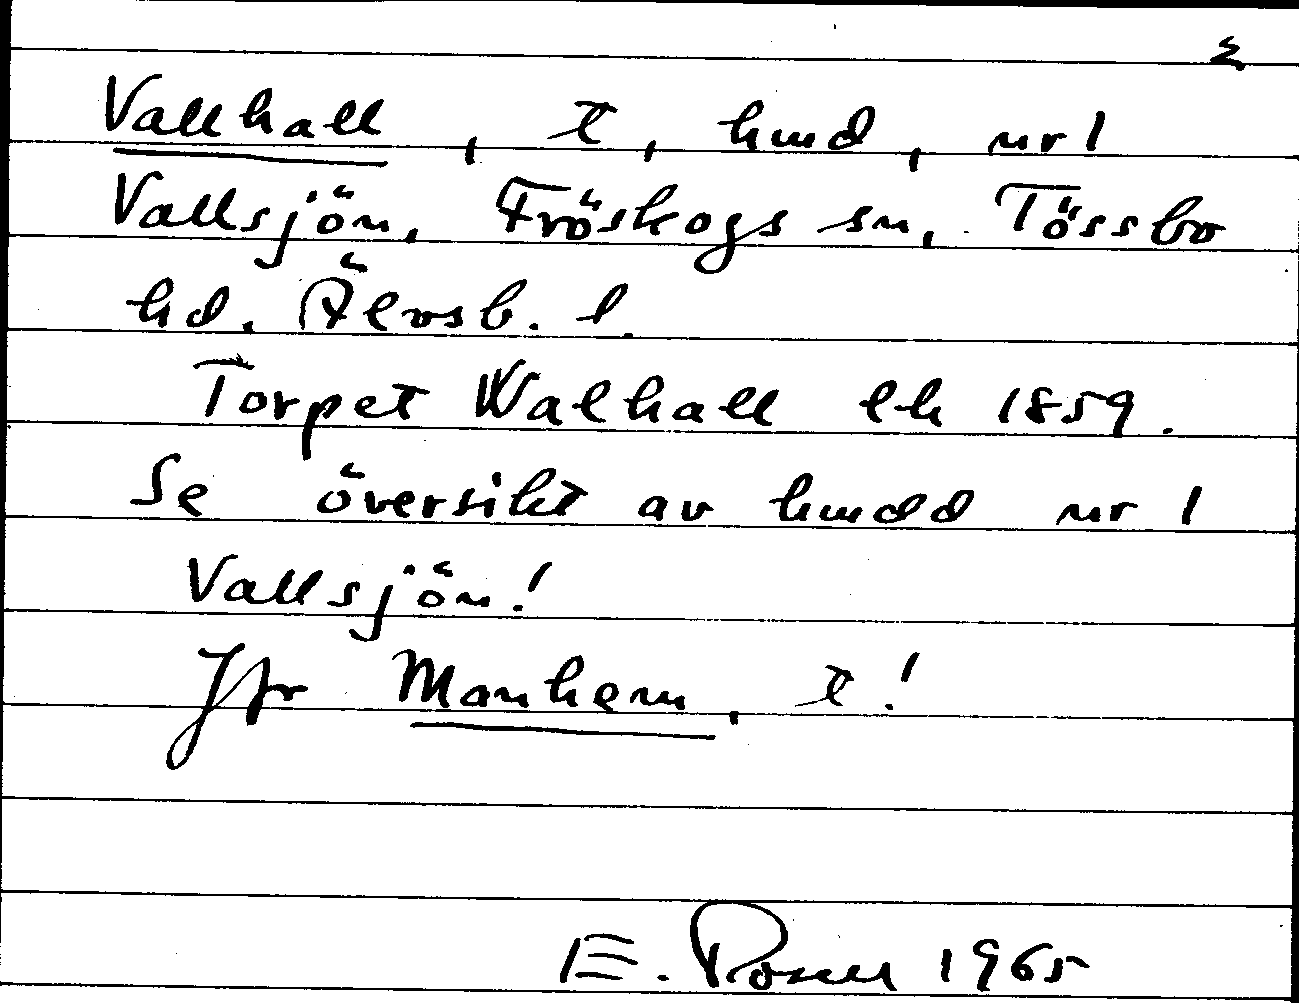 Vallhall, t, hmd, nr 1
Vallsjön, Fröskogs sn, Tössbo
hd. Älvsb. l.
Torpet Walhall lk 1859.
Se översikt av hmdd nr 1
Vallsjön!
Jfr Manhem, t!
E. Rosell 1965